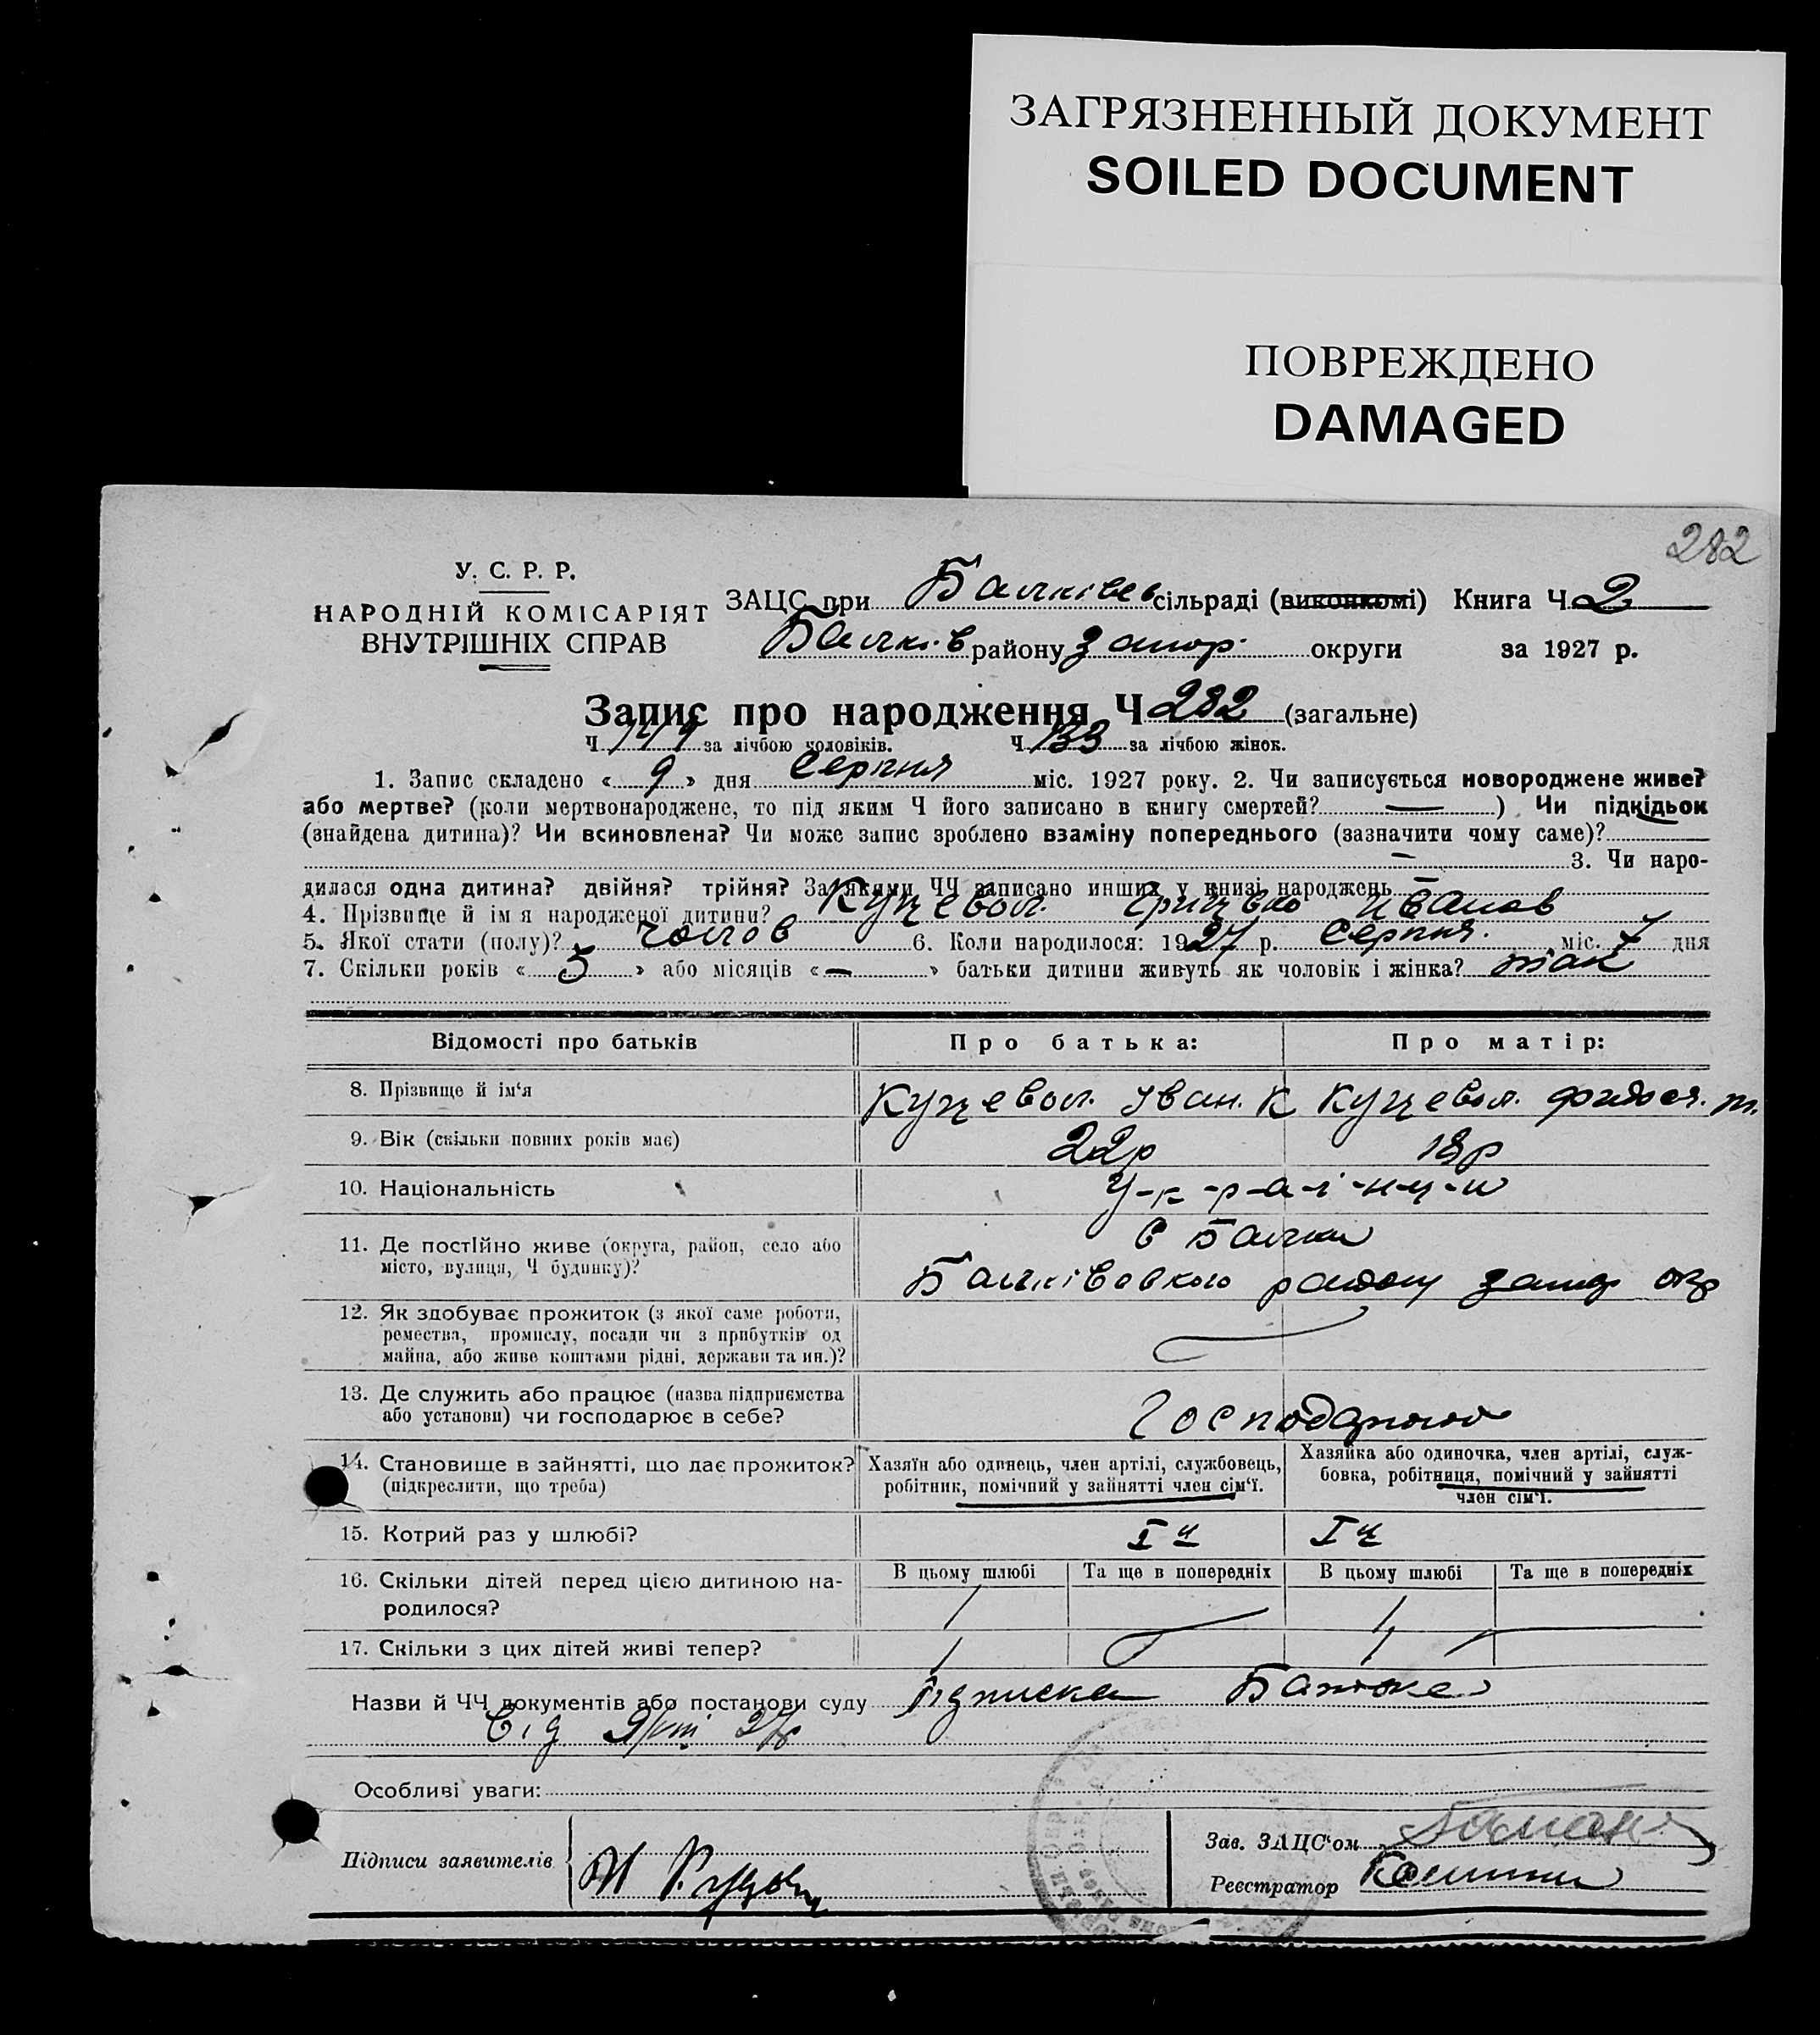 ЗАГРЯЗНЕННЫЙ ДОКУМЕНТ
SOILED DOCUMENT
ПОВРЕЖДЕНО
DAMAGED
282
У. С. Р. Р.
НАРОДНІЙ КОМІСАРІЯТ
ВНУТРІШНІХ СПРАВ
ЗАЦС при Балківсв сільраді (виконкомі) Книга Ч 2
Балків району Запор. округи за 1927 р.
Запис про народження Ч 282 (загальне)
Ч 149 за лічбою чоловіків. Ч 133 за лічбою жінок.
1. Запис складено « 9 » дня Серпня міс. 1927 року. 2. Чи записується новороджене живе?
або мертве? (коли мертвонароджене, то під яким Ч його записано в книгу смертей? — ) Чи підкідьок
(знайдена дитина)? Чи всиновлена? Чи може запис зроблено взаміну попереднього (зазначити чому саме)?
— 3. Чи наро-
дилася одна дитина? двійня? трійня? За якими ЧЧ записано инших у книзі народжень —
4. Прізвище й ім я народженої дитини? Куцевол. Грицько Иванов
5. Якої стати (полу)? Чолов 6. Коли народилося: 1927 р. Серпня. міс. 7 дня
7. Скільки років « 5 » або місяців « — » батьки дитини живуть як чоловік і жінка? так
Відомості про батьків Про батька: Про матір:
8. Прізвище й ім‘я Куцевол. Іван. К Куцевол. т.
9. Вік (скільки повних років має) 22р 18р
10. Національність У-к-р-а-ї-н-ц-и
11. Де постІйно живе (округа, район, село або С Балки
місто, вулиця, Ч будинку)? Балківського району Запор окр
12. Як здобуває прожиток (з якої саме роботи,
ремества, промислу, посади чи з прибутків од
майна, або живе коштами рідні, держави та ин.)?
13. Де служить або працює (назва підприємства
або установи) чи господарює в себе? Господарюю
14. Становище в зайнятті, що дає прожиток? Хазяїн або одинець, член артілі, службовець, Хазяйка або одиночка, член артілі, служ-
(підкреслити, що треба) робітник, помічний у зайнятті член сім‘ї. бовка, робітниця, помічний у зайнятті
член сім‘ї.
15. Котрий раз у шлюбі? І й І й
16. Скільки дітей перед цією дитиною на- В цьому шлюбі Та ще в попередніх В цьому шлюбі Та ще в попередніх
родилося? 1 — 1 —
17. Скільки з цих дітей живі тепер? 1 — 1 —
Назви й ЧЧ документів або постанови суду Підписка Батька
Від 9/VIII 27р
Особливі уваги:
Підписи заявителів
Зав. ЗАЦС‘ом
Реєстратор